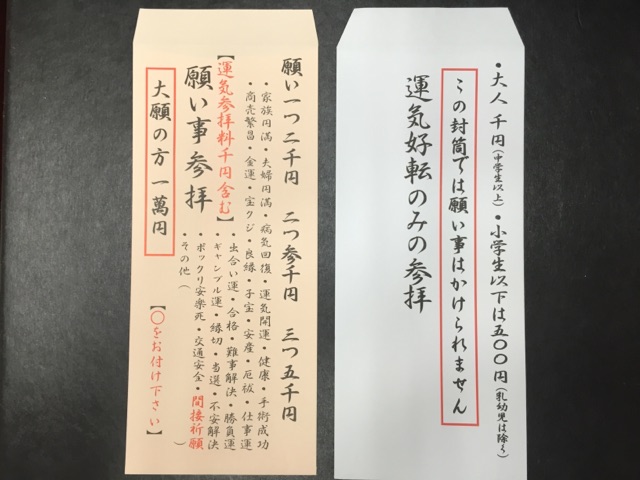 ・大人 千円（中学生以上）・小学生以下は五〇〇円（乳幼児は除く）
この封筒では願い事はかけられません
運気好転のみの参拝
願い一つ二千円 二つ参千円 三つ五千円
・家族円満・夫婦円満・病気回復・運気開運・健康・手術成功
・商売繁昌・金運・宝クジ・良縁・子宝・安産・厄祓・仕事運
・出合い運・合格・難事解決・勝負運
・ギャンブル運・縁切・当選・不安解決
・ポックリ安楽死・交通安全・間接祈願
・その他（ ）
【運気参拝料千円含む】
願い事参拝
【〇をお付け下さい】
大願の方 一萬円